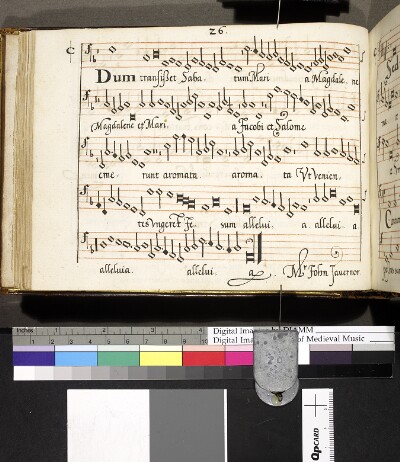 26.
Dum transisset Saba tum Mari a Magdale ne
Magdalene et Mari a Jacobi et Salome
eme runt aromata aroma ta Ut venien
tis ungeret Je sum allelui a. allelui a
alleluia allelui a Mr John Taverner
inches 1 2 3 4
Digital Ima DIAMM
Digital Im of Medieval Music
QPCARD